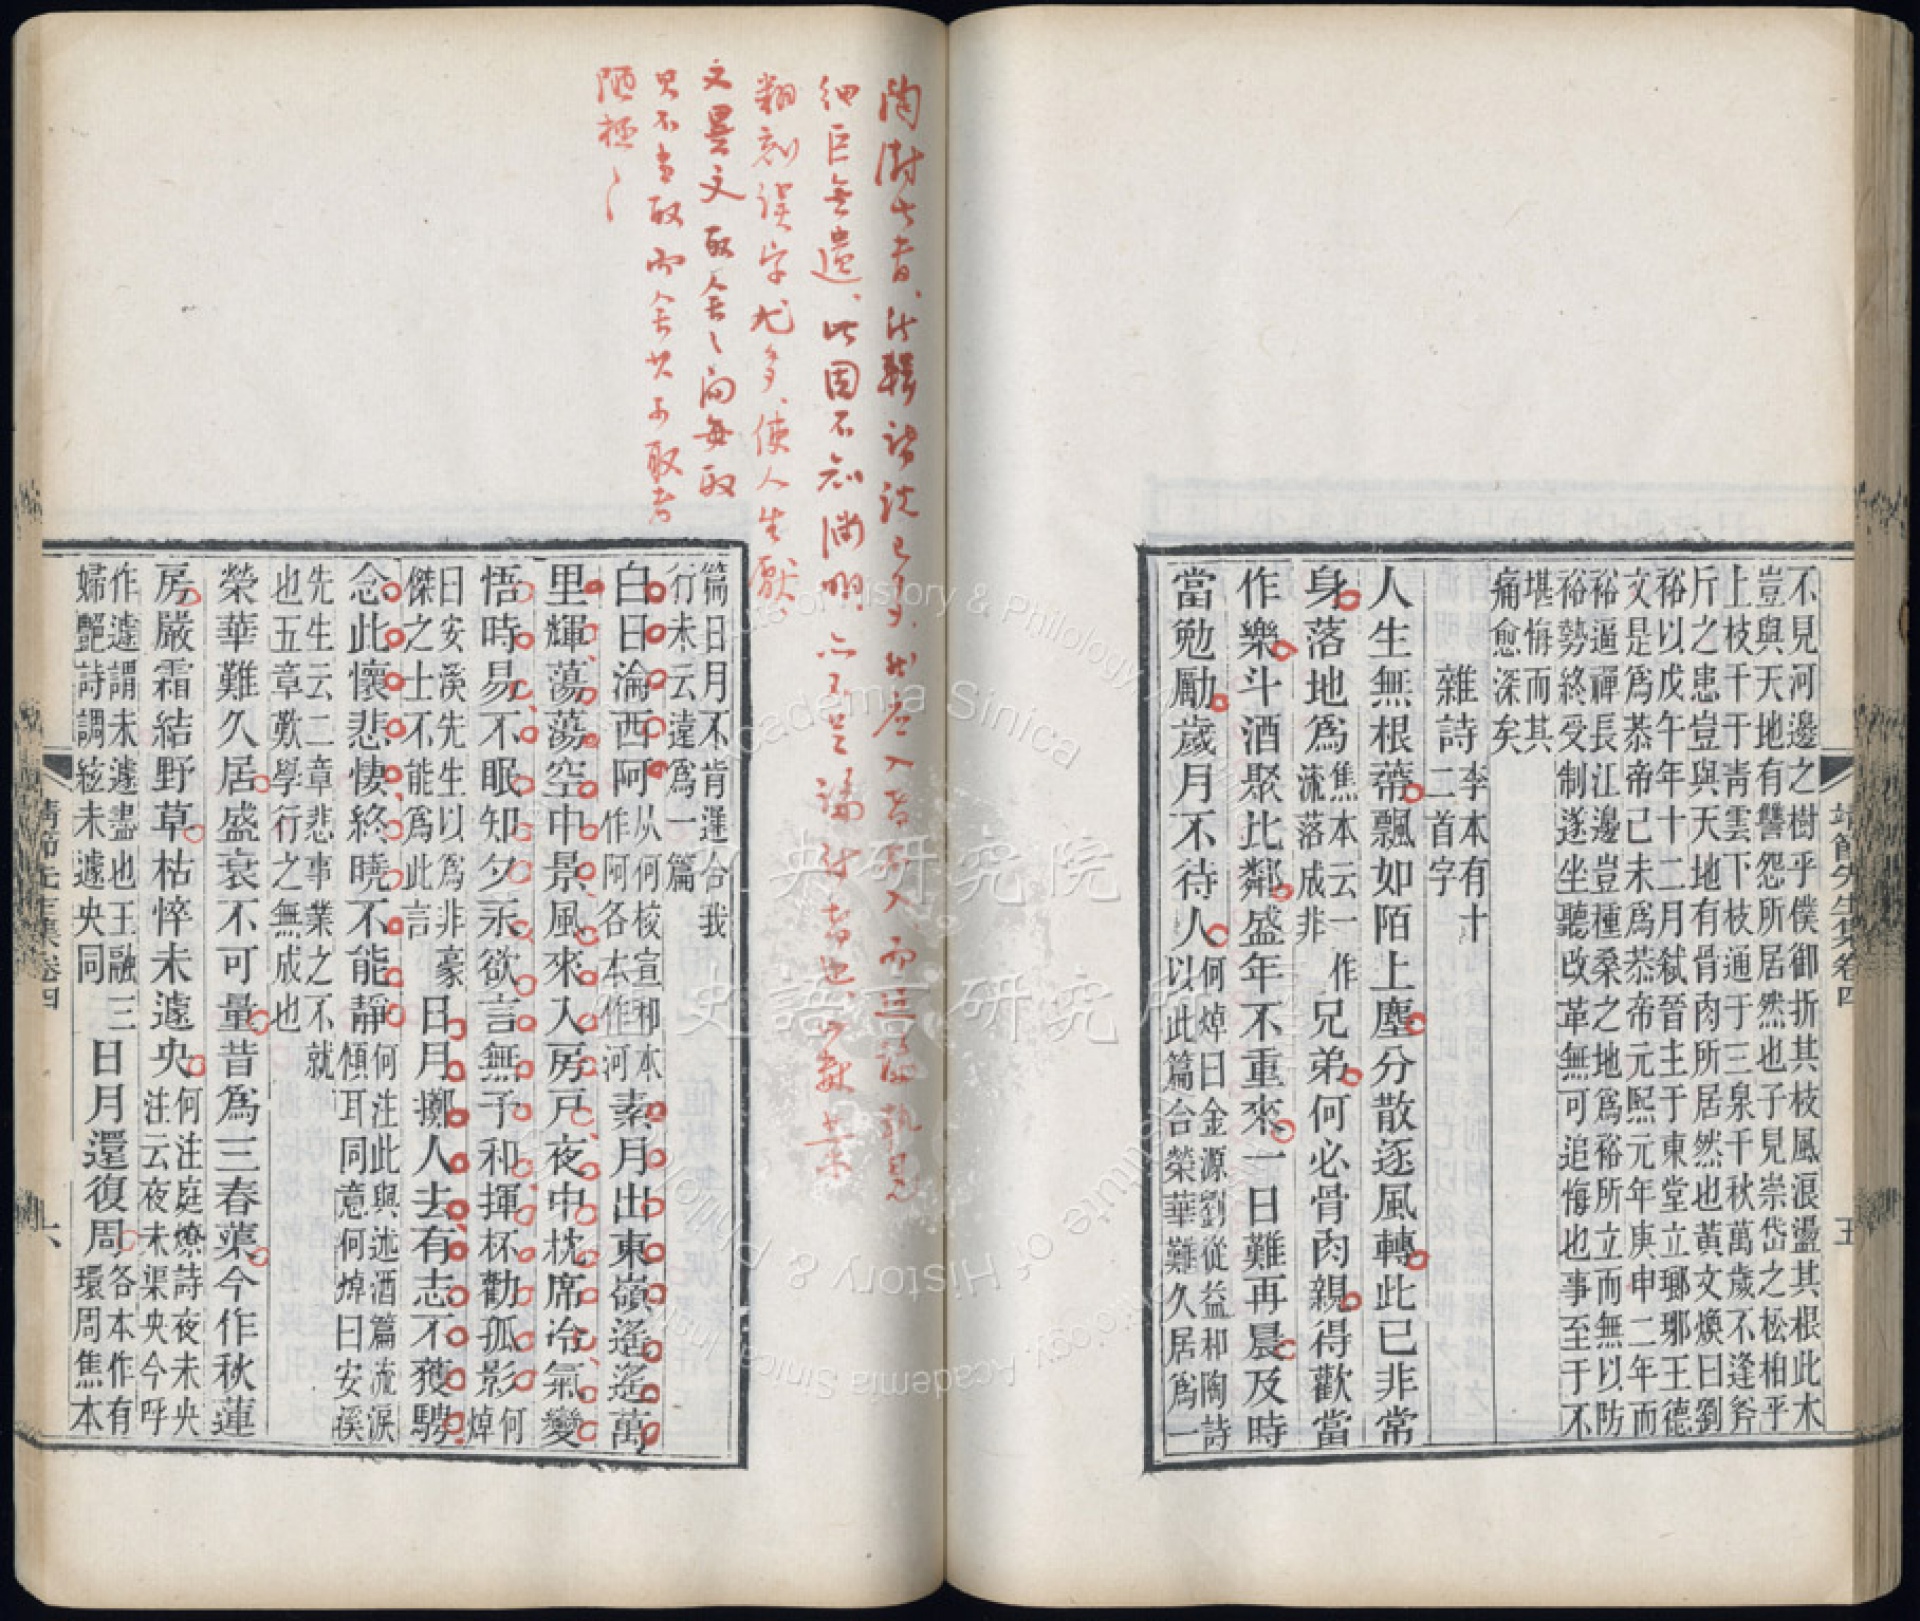 不見河邊之樹乎僕御折其枝風浪盪其根此木
豈與天地有讐怨所居然也子見崇岱之松柏乎
上枝干于青雲下枝通于三泉千秋萬歲不逢斧
斤之患豈與天地有骨肉所居然也黃文煥曰劉
裕以戊午年十二月弒晉主于東堂立瑯琊王德
文是爲恭帝己未爲恭帝元熙元年庚申二年而
裕逼禪長江邊豈種桑之地爲裕所立而無以防
裕勢終受制遂坐聽改革無可追悔也事至于不
堪悔而其
痛愈深矣
雜詩
李本有十
二首字
人生無根蔕飄如陌上塵分散逐風轉此已非常
身落地爲
焦本云一作
流落成非
兄弟何必骨肉親得歡當
作樂斗酒聚比鄰盛年不重來一日難再晨及時
當勉勵歲月不待人
何焯曰金源劉從益和陶詩
以此篇合榮華難久居爲一
靖節先生集卷四
五
陶澍
細巨無遺、此固不
翻刻誤字尤多、使人生厭、
文異文取舍、間每取
其不當取而舍其不可取者
陋極
篇日月不肯遲合我
行未云遠爲一篇
白日淪西阿
从何校宣和本
作阿各本作河
素月出東嶺遙遙萬
里輝蕩蕩空中景風來入房戶夜中枕席冷氣變
悟時易不眠知夕永欲言無予和揮杯勸孤影
何焯
曰安溪先生以爲非豪
傑之士不能爲此言
日月擲人去有志不獲騁
念此懷悲悽終曉不能靜
何注此與述酒篇流淚
傾耳同意何焯曰安溪
先生云二章悲事業之不就
也五章歎學行之無成也
榮華難久居盛衰不可量昔爲三春蕖今作秋蓮
房嚴霜結野草枯悴未遽央
何注庭燎詩夜未央
注云夜未渠央今呼
作遽謂未遽盡也王融三
婦艷詩調絃未遽央同
日月還復周
各本作有
環周焦本
靖節先生集卷四
六